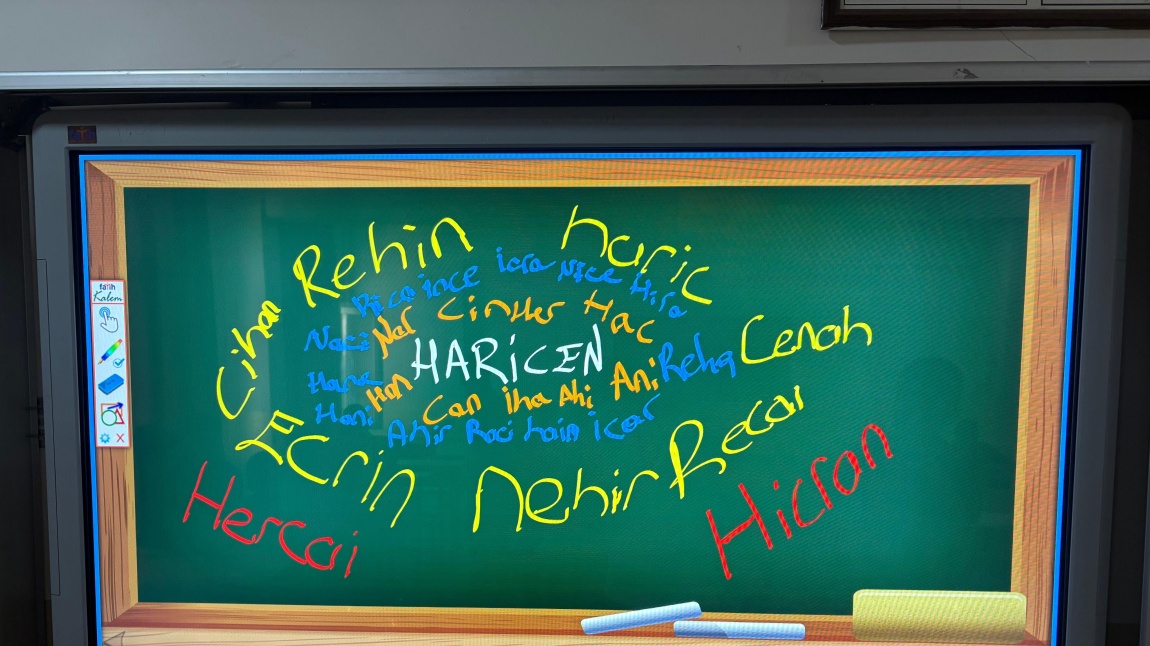 Rehin haric
Cihan
Rica ince icra Nice Hira
Naci Nar Cin Her Hac
HARiCEN
Reha Cenah
Hana Han Can iha Ahi Ani
Hani
Ahir Raci hain icar
Ecrin Nehir Recai
Hercai Hicran
fatih
Kalem